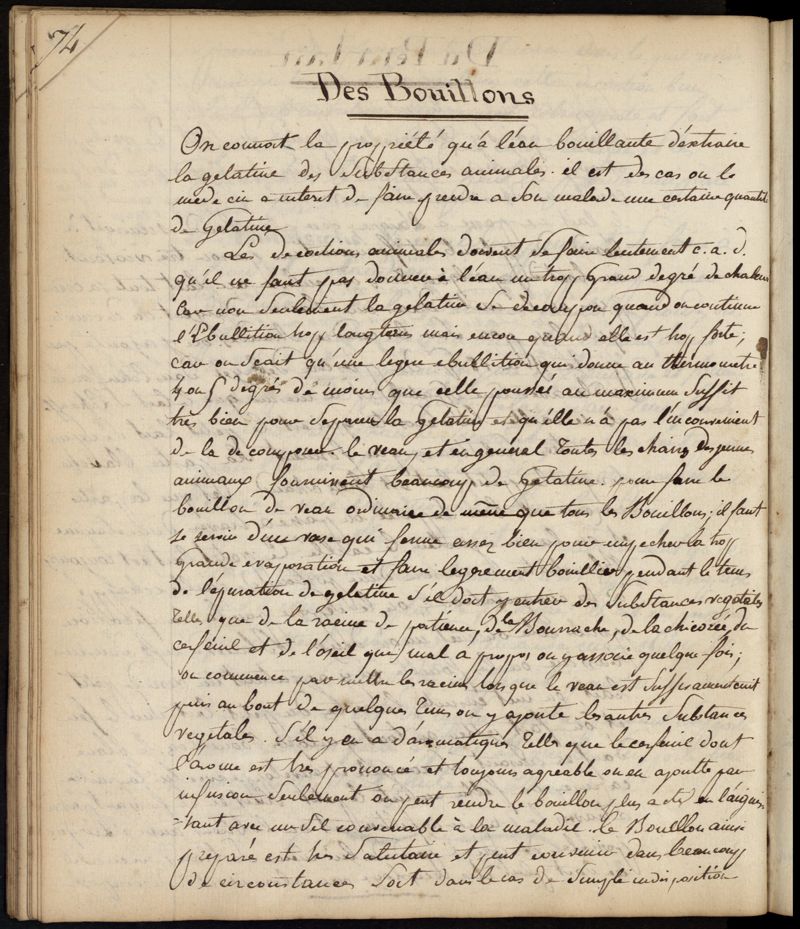 74
Des Bouillons
On connoit la propriété qu'à l'éau bouillante d'éxtraire
la gelatine des substances animales. il est des cas ou le
medecin a interet de faire prendre a son malade une certaine quantité
de Gelatine
Les decoctions animales doivent se faire lentement c. a. d.
qu'il ne faut pas donner à l'éau un trop grand degré de chaleur
car non seulement la gelatine se decompose quand on continue
l'Ebullition trop longtems mais encore quand elle est trop forte;
car on scait qu'une legere ebullition qui donne au thermometre
4 ou 5 degrés de moins que celle poussée au maximum suffit
très bien pour separer la Gelatine et qu'élle n'à pas l'inconvenient
de la decomposer. le veau, et en general toutes les chairs des jeunes
animaux fournissent beaucoup de Gelatine. pour faire le
bouillon de veau ordinaire de même que tous les Bouillons; il faut
se servir d'une vase qui ferme assez bien pour empecher la trop
Grande evaporation et faire legerement bouillir pendant le tems
de l'épuration de gelatine s'il doit y entrer des substances vegetales
telles que de la racine de patience, de la Bourrache, de la chicorée, du
cerfeuil et de l'oseil que mal a propos on y associe quelque fois;
on commence par mettre les racines lorsque le veau est suffisamment cuit
puis au bout de quelques tems on y ajoute les autres substances
vegetales. s'il y en a d'aromatiques telles que le cerfeuil dont
l'arome est tres prononcé et toujours agreable on en ajoutte par
infusion seulement on peut rendre le bouillon plus actif en l'aigui-
-sant avec un sel convenable à la maladie. le Bouillon ainsi
preparé est tres salutaire et peut convenir dans beaucoup
de circonstances soit dans le cas de simple indisposition